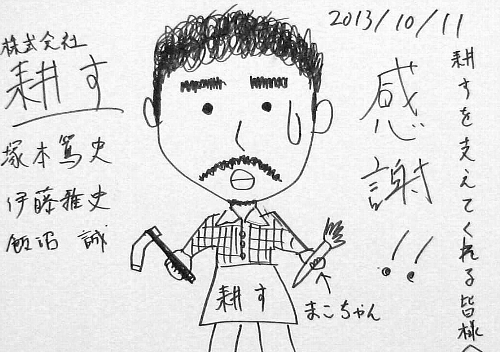 2013/10/11
耕すを支えてくれる皆様へ
感謝!!
株式会社
耕す
塚本篤史
伊藤雅史
飯沼 誠
耕す
まこちゃん